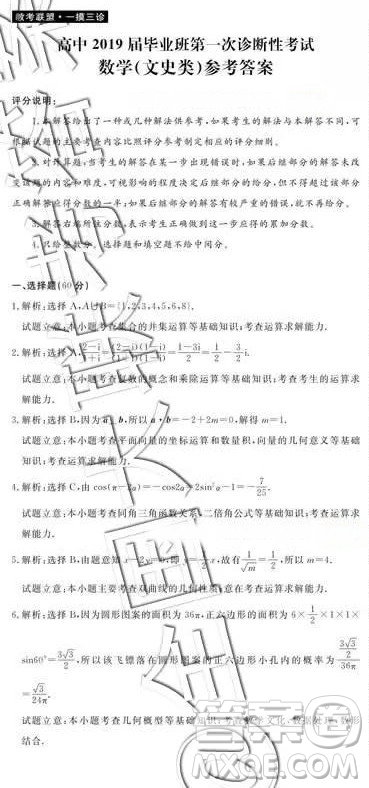 高中2019届毕业班第一次诊断性考试
数学(文史类)参考答案
评分说明:
1.本解答给出了一种或几种解法供参考,如果考生的解法与本解答不同,可
根据试题的主要考查内容比照评分参考制定相应的评分细则。
2.对计算题,当考生的解答在某一步出现错误时,如果后继部分的解答未改
变该题的内容和难度,可视影响的程度决定后继部分的给分,但不得超过该部分
正确解答应得分数的一半;如果后继部分的解答有较严重的错误,就不再给分。
3.解答右端所注分数,表示考生正确做到这一步应得的累加分数。
4.只给整数分。选择题和填空题不给中间分。
一、选择题(60分)
1.解析:选择A,A∪B={1,2,3,4,5,6,8}.
试题立意:本小题考查集合的并集运算等基础知识;考查运算求解能力.
2.解析:选择A,(2-i)/(1+i)=(2-i)(1-i)/(1+i)(1-i)=(1-3i)/2=1/2-3/2i.
试题立意:本小题考查复数的概念和乘除运算等基础知识;考查考生的运算求
解能力.
3.解析:选择B,因为a⊥b,所以a·b=-2+2m=0,解得m=1.
试题立意:本小题考查平面向量的坐标运算和数量积,向量的几何意义等基础
知识;考查运算求解能力.
4.解析:选择C,由cos(π-2α)=-cos2α=2sin²α-1=-7/25.
试题立意:本小题考查同角三角函数关系,二倍角公式等基础知识;考查运算求
解能力.
5.解析:选择B,由题意知x-2y=0,即y=1/2x,故有1/√m=1/2,所以m=4.
试题立意:本小题主要考查双曲线的几何性质;考查运算求解能力.
6.解析:选择B,因为圆形图案的面积为36π,正六边形的面积为6×1/2×1×1×
sin60°=3√3/2,所以该飞镖落在圆形图案的正六边形小孔内的概率为(3√3/2)/36π=
√3/24π.
试题立意:本小题考查几何概型等基础知识;考查数学文化,数据处理,数形
结合.